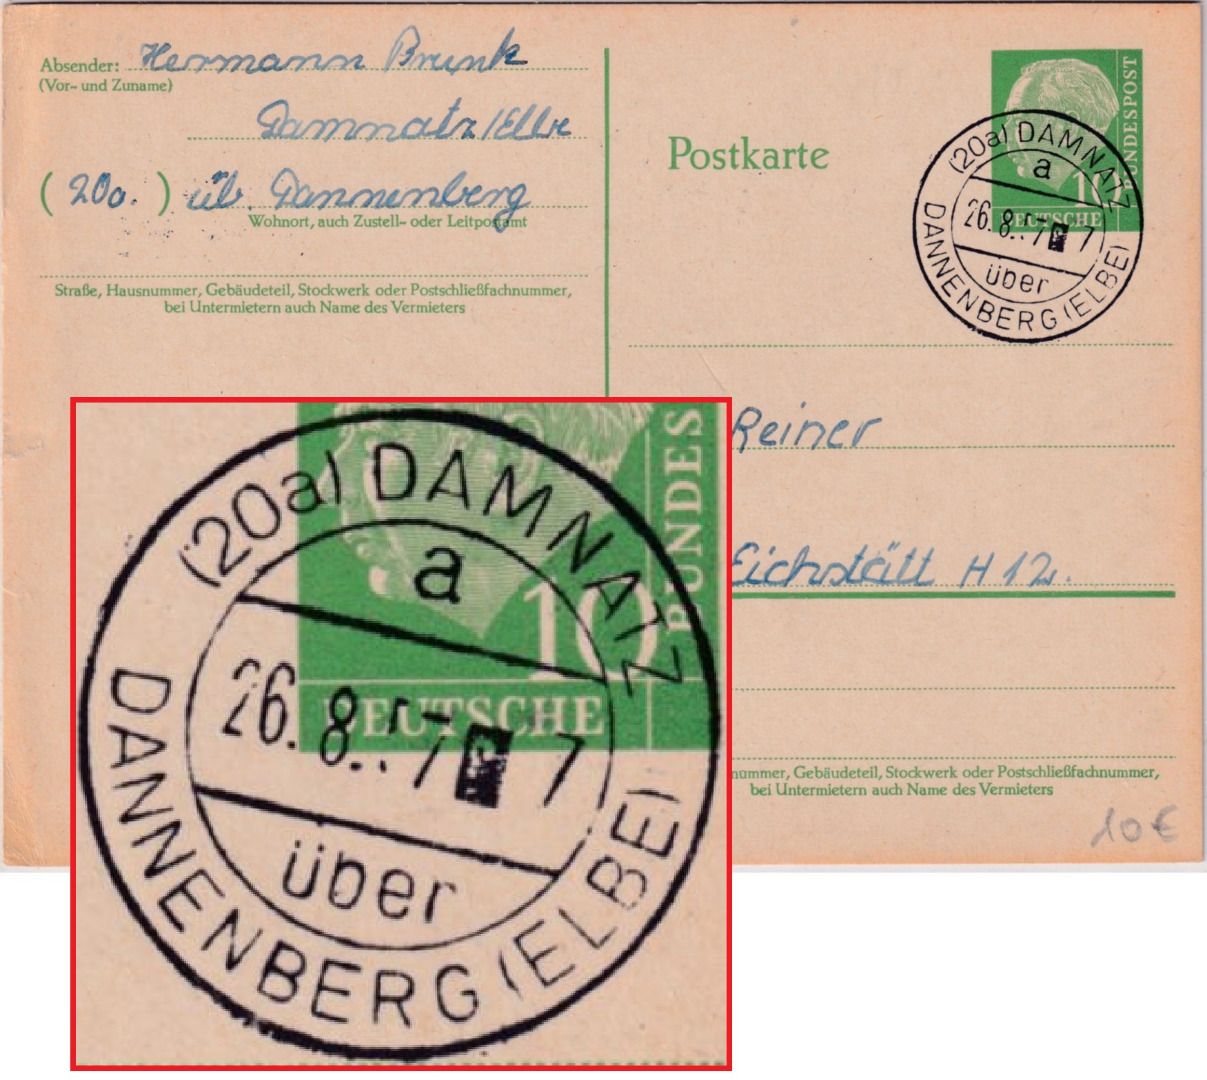 Absender: Hermann Brunk
(Vor- und Zuname)
Damnatz/Elbe
(20a.) üb. Dannenberg
Wohnort, auch Zustell- oder Leitpostamt
Straße, Hausnummer, Gebäudeteil, Stockwerk oder Postschließfachnummer,
bei Untermietern auch Name des Vermieters
Postkarte
BUNDESPOST
10
DEUTSCHE
(20a) DAMNATZ
a
26.8.57 7
über
DANNENBERG (ELBE)
Reiner
Eichstätt H 12.
nummer, Gebäudeteil, Stockwerk oder Postschließfachnummer,
bei Untermietern auch Name des Vermieters
10 €
BUNDES
10
DEUTSCHE
(20a) DAMNATZ
a
26.8.57 7
über
DANNENBERG (ELBE)